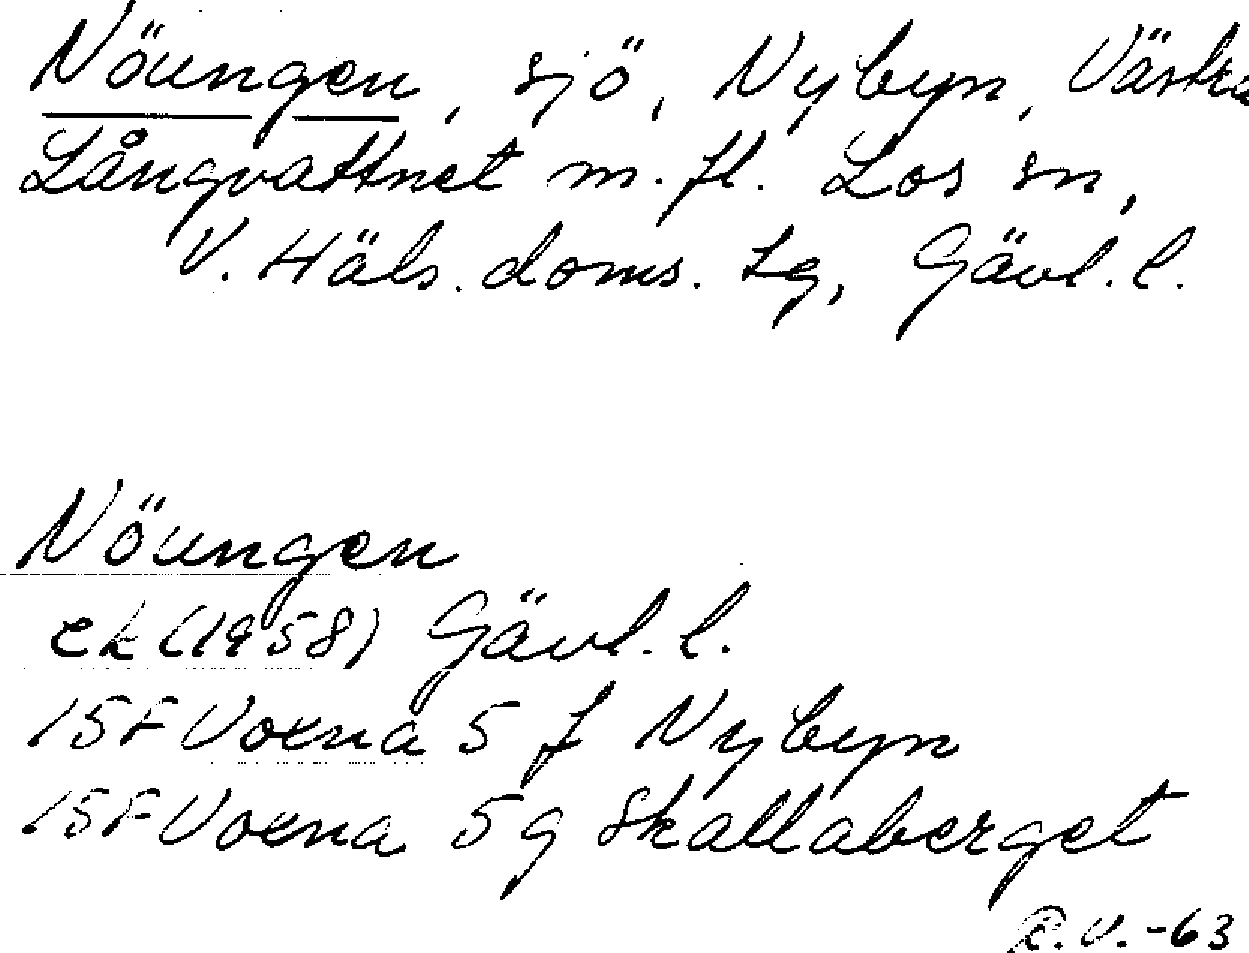 Nöungen, sjö, Nybyn, Västra
Långvattnet m. fl. Los sn,
V. Häls. doms. tg, Gävl. l.
Nöungen
ek (1958) Gävl. l.
15F Voxna 5 f Nybyn
15F Voxna 5g Skallaberget
R.V.-63